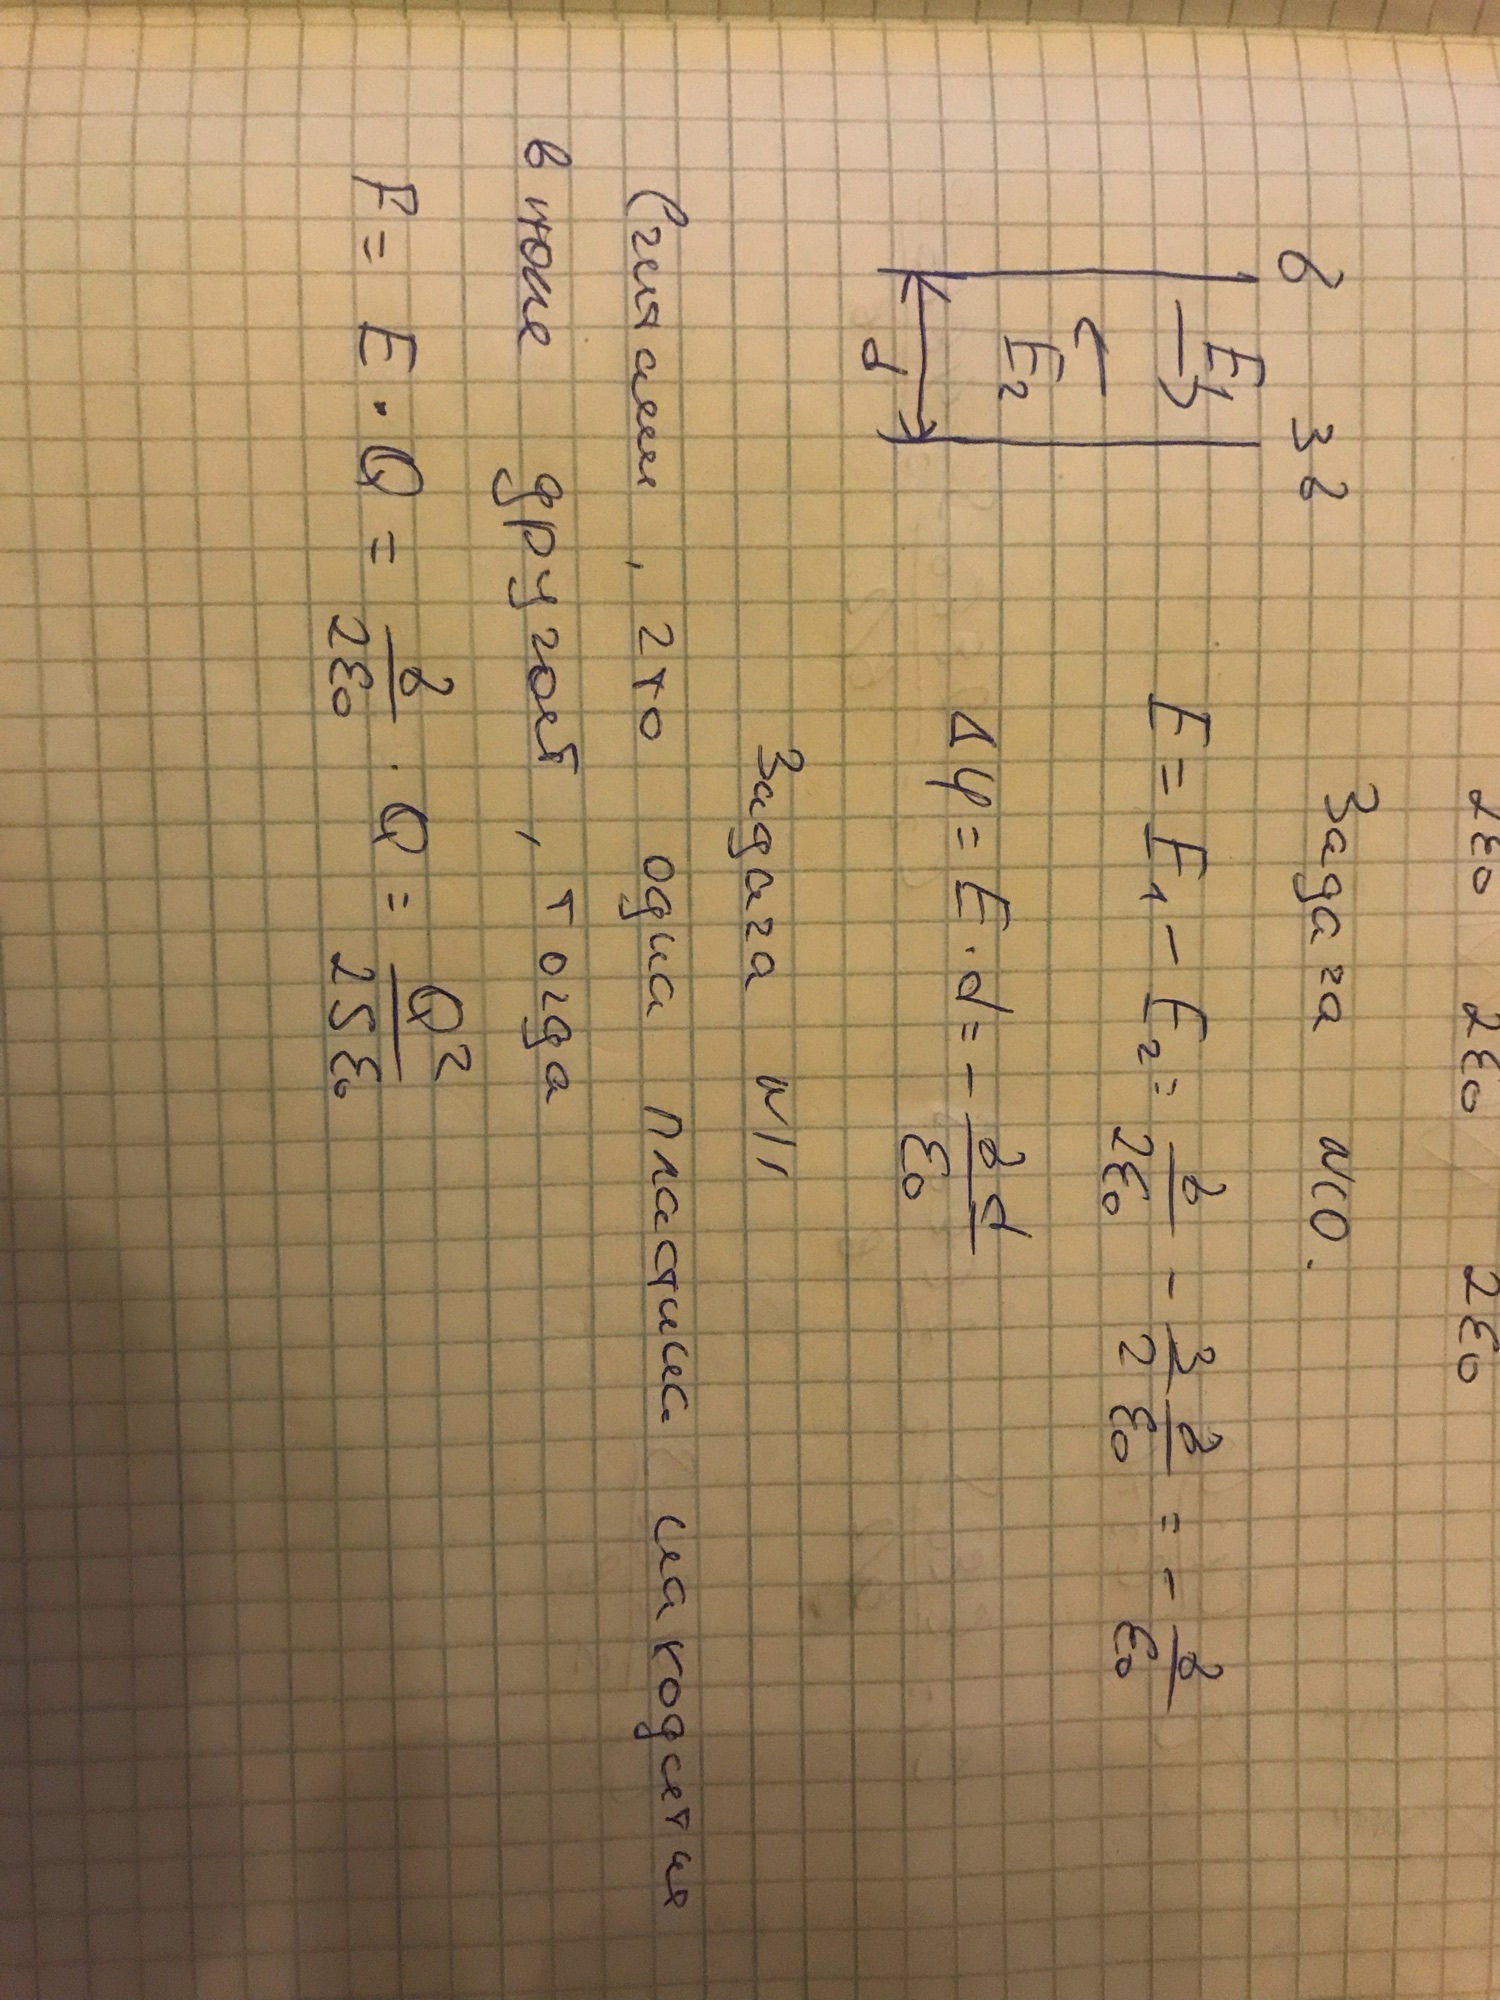 2ε₀ 2ε₀ 2ε₀
Задача №10.
σ 3σ
E₁
E = E₁ - E₂ = σ/2ε₀ - 3/2 σ/ε₀ = - σ/ε₀
E₂
Δφ = E · d = - σd/ε₀
d
Задача №11
Считаем, что одна пластина находится
в поле другой, тогда
F = E · Q = σ/2ε₀ · Q = Q²/2Sε₀